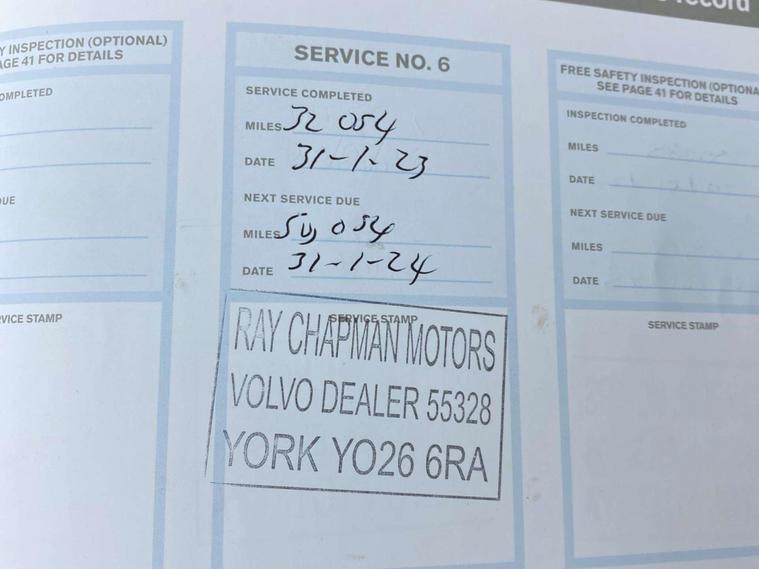 record
Y INSPECTION (OPTIONAL)
AGE 41 FOR DETAILS
OMPLETED
UE
VICE STAMP
SERVICE NO. 6
SERVICE COMPLETED
MILES 32 054
DATE 31-1-23
NEXT SERVICE DUE
MILES 50,054
DATE 31-1-24
SERVICE STAMP
RAY CHAPMAN MOTORS
VOLVO DEALER 55328
YORK YO26 6RA
FREE SAFETY INSPECTION (OPTIONA
SEE PAGE 41 FOR DETAILS
INSPECTION COMPLETED
MILES
DATE
NEXT SERVICE DUE
MILES
DATE
SERVICE STAMP